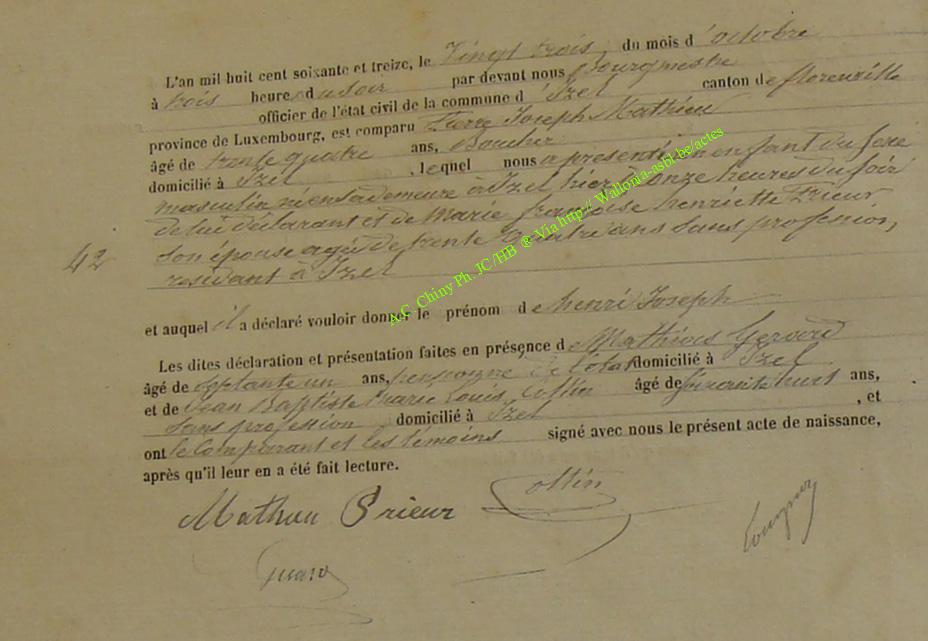 L'an mil huit cent soixante et treize, le Vingt trois, du mois d'octobre
à trois heures du soir par devant nous Bourgmestre
officier de l'état civil de la commune d'Izel canton de florenville
province de Luxembourg, est comparu Pierre Joseph Mathieu
âgé de trente quatre ans, Boucher
domicilié à Izel , lequel nous a presenté un enfant du sexe
masculin né en sa demeure à Izel hier à onze heures du soir
de lui déclarant et de Marie françoise henriette Prieur
42 son épouse agée de trente quatre ans sans profession,
residant à Izel
et auquel il a déclaré vouloir donner le prénom de henri Joseph
Les dites déclaration et présentation faites en présence de Mathias Gerard
âgé de septante un ans, pensionné de l'état domicilié à Izel
et de Jean Baptiste Marie Louis Collin âgé de huit ans,
sans profession domicilié à Izel , et
ont le comparant et les témoins signé avec nous le présent acte de naissance,
après qu'il leur en a été fait lecture.
Mathieu Prieur Collin
A.C. Chiny Ph. JC/HB @ Via http://Wallonia-asbl.be/actes